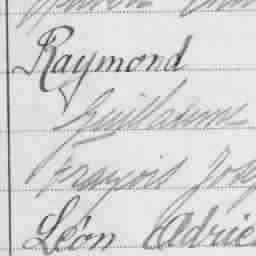 Raymond
Guillaume
François Jos
Léon Adrie